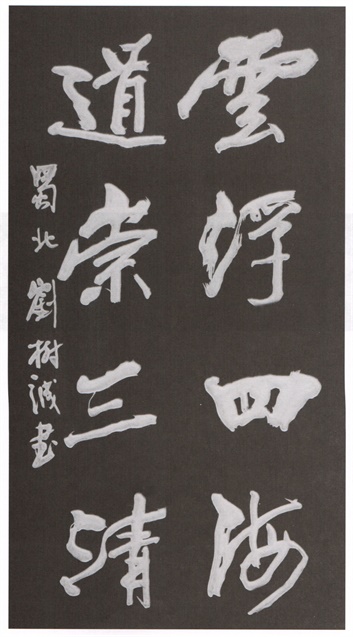 雲四海
道崇三清
蜀北劉樹誠書